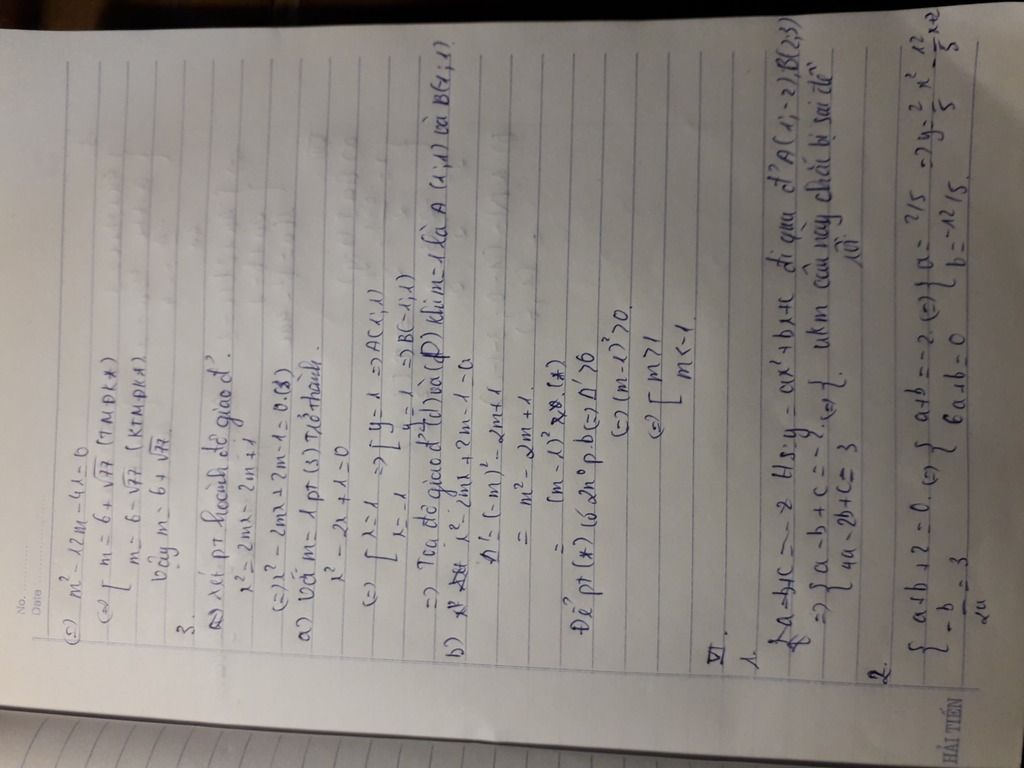 No.
Date
(=) m² - 12m - 41 = 0
(=) [ m = 6 + √77 (TMĐKX)
m = 6 - √77 (KTMĐKX)
Vậy m = 6 + √77
3.
xét pt hoành độ giao đ'
x² = 2mx - 2m + 1
(=) x² - 2mx + 2m - 1 = 0 (3)
a) Với m = 1 pt (3) trở thành
x² - 2x + 1 = 0
(=) [ x = 1 => [ y = 1 => A(1; 1)
x = -1 y = 1 => B(-1; 1)
=) Toạ độ giao đ' (d) và (P) khi m = 1 là A(1; 1) và B(-1; 1)
b) x² - 2mx + 2m - 1 = 0
Δ' = (-m)² - 2m + 1
= m² - 2m + 1
= (m - 1)² (*)
Để pt (*) có 2 n° pb (=) Δ' > 0
(=) (m - 1)² > 0
(=) [ m > 1
m < -1
VI.
1. a - b + c = -2 Hs: y = ax² + bx + c đi qua đ' A(1; -2), B(2; 3)
=> { a - b + c = -2 (=) { ukm câu này chắc bị sai đề
4a - 2b + c = 3
2.
{ a + b + 2 = 0 (=) { a + b = -2 (=) { a = 2/5 => y = 2/5 x² - 12/5 x + 2
-b/2a = 3 6a + b = 0 b = -12/5
HẢI TIẾN